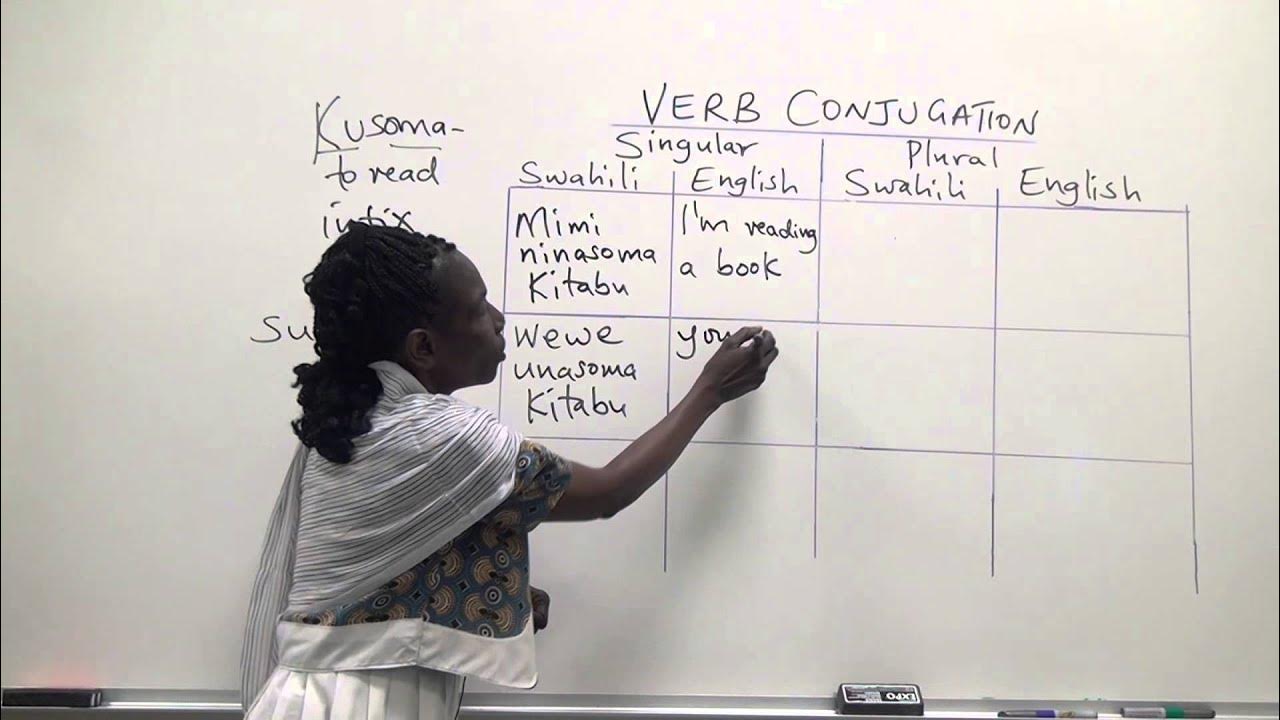 VERB CONJUGATION
Kusoma-
to read
infix
Su
Singular
Plural
Swahili English Swahili English
Mimi
ninasoma
Kitabu
I'm reading
a book
Wewe
unasoma
Kitabu
you
EXPO